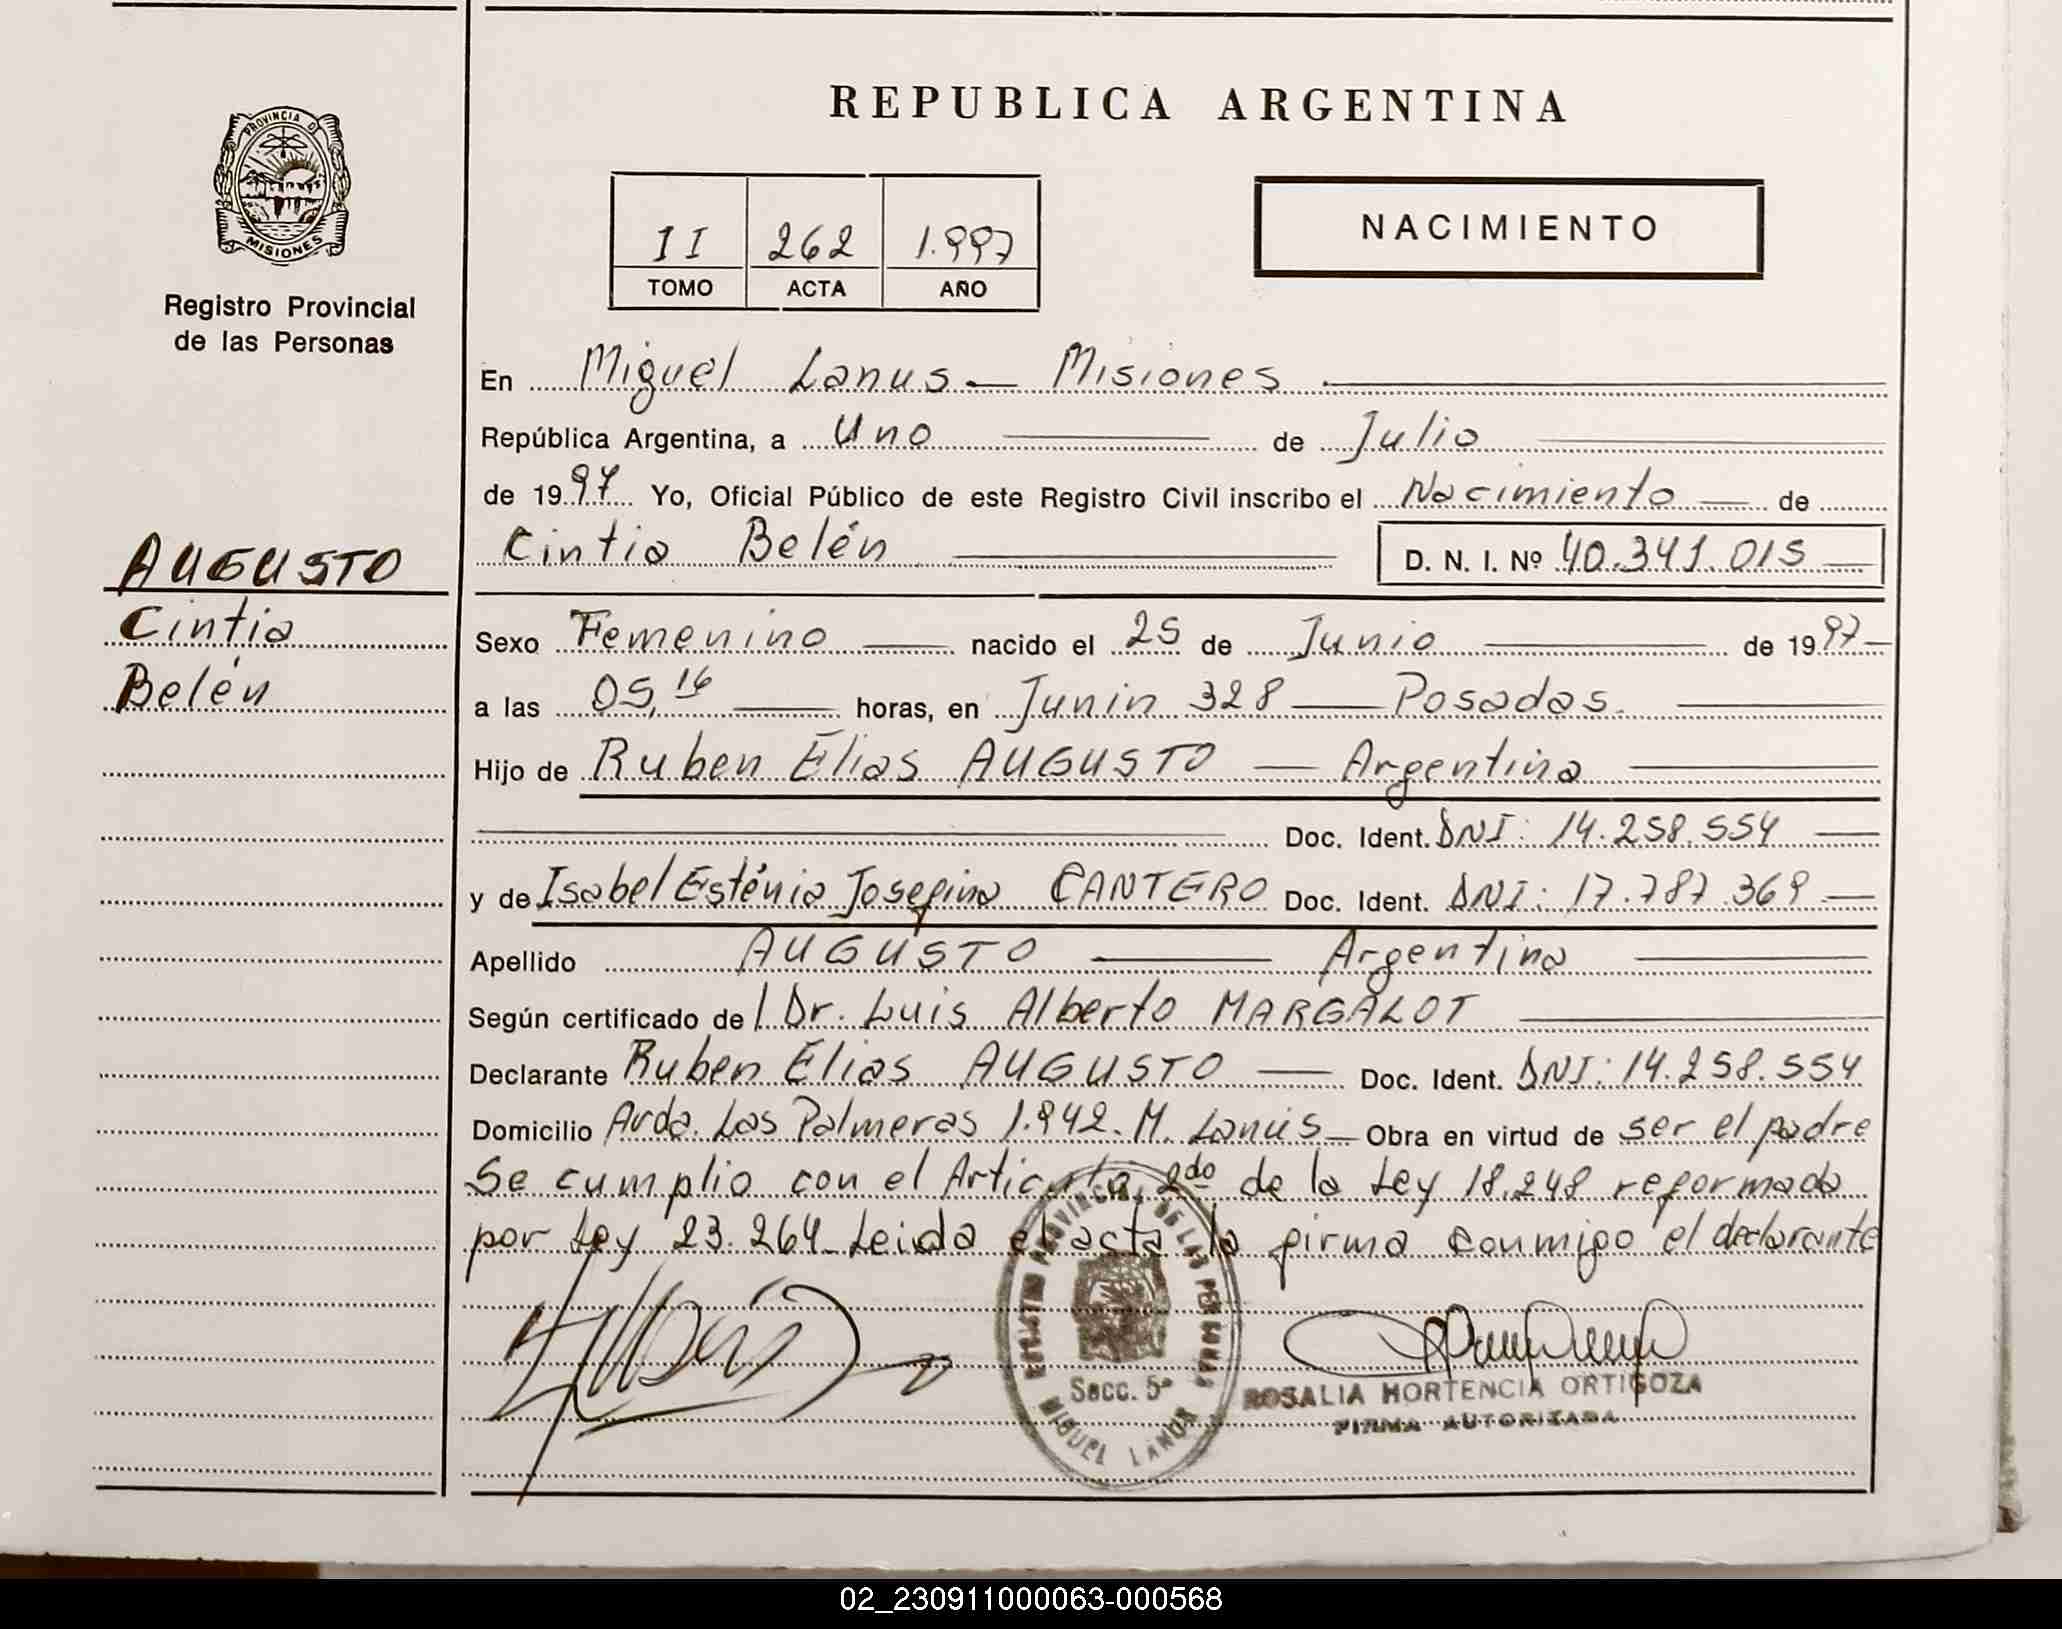 PROVINCIA DE
MISIONES
Registro Provincial
de las Personas
AUGUSTO
Cintia
Belén
REPUBLICA ARGENTINA
II 262 1.997
TOMO ACTA AÑO
NACIMIENTO
En Miguel Lanus - Misiones
República Argentina, a Uno de Julio
de 1997 Yo, Oficial Público de este Registro Civil inscribo el Nacimiento de
Cintia Belén D. N. I. Nº 40.341.015
Sexo Femenino nacido el 25 de Junio de 1997
a las 05,16 horas, en Junin 328 Posadas
Hijo de Ruben Elias AUGUSTO Argentina
Doc. Ident. DNI: 14.258.554
y de Isabel Esténia Josefina CANTERO Doc. Ident. DNI: 17.787.369
Apellido AUGUSTO Argentina
Según certificado del Dr. Luis Alberto MARGALOT
Declarante Ruben Elias AUGUSTO Doc. Ident. DNI: 14.258.554
Domicilio Avda. Las Palmeras 1.942. M. Lanús Obra en virtud de ser el padre
Se cumplio con el Articulo 2do de la Ley 18.248 reformada
por Ley 23.264 Leida el acta la firma conmigo el declarante
REGISTRO PROVINCIAL DE LAS PERSONAS
Secc. 5ª
MIGUEL LANUS
ROSALIA HORTENCIA ORTIGOZA
FIRMA AUTORIZADA
02_230911000063-000568